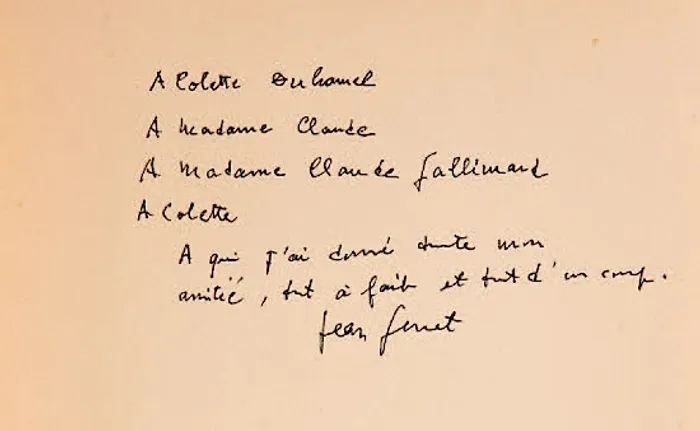 A Colette Duhamel
A Madame Claude
A Madame Claude Gallimard
A Colette
A qui j'ai donné toute mon
amitié, tout à fait et tout d'un coup.
Jean Genet